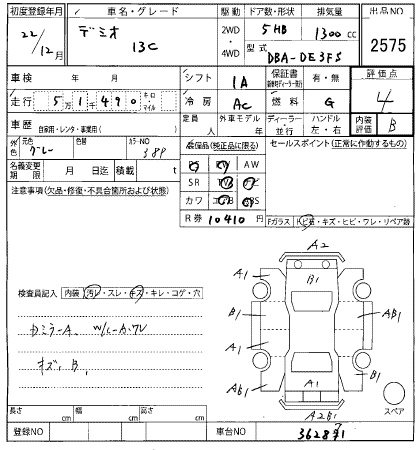 初度登録年月 車名・グレード 駆動 ドア数・形状 排気量 出品NO
22/12月 デミオ 13C 2WD・4WD 5HB 1300cc 2575
型式 DBA-DE3FS
車検 年 月 シフト IA 保証書 有・無 評価点
走行 5万1千490 キロ・マイル 冷房 AC 燃料 G 4
車歴 自家用・レンタ・事業用( ) 定員 人 外車モデル 年 ディーラー・並行 ハンドル 左・右 内装評価 B
外色 元色 グレー 色替 カラーNO 38P 装備品(純正品に限る) セールスポイント(正常に作動するもの)
名義変更期限 月 日迄 積載 t AW
注意事項(欠品・修復・不具合箇所および状態) SR TV ナビ
カワ
R券 10410 円
Fガラス トビ石・キズ・ヒビ・ワレ・リペア跡
A2
A1 B1
検査員記入 内装 汚レ・スレ・キズ・キレ・コゲ・穴
B1 AB1
カミラーA、
A1
キズ、B、
AB1 A1 B1
スペア
A2B1
長さ cm 幅 cm 高さ cm
登録NO 車台NO 362871